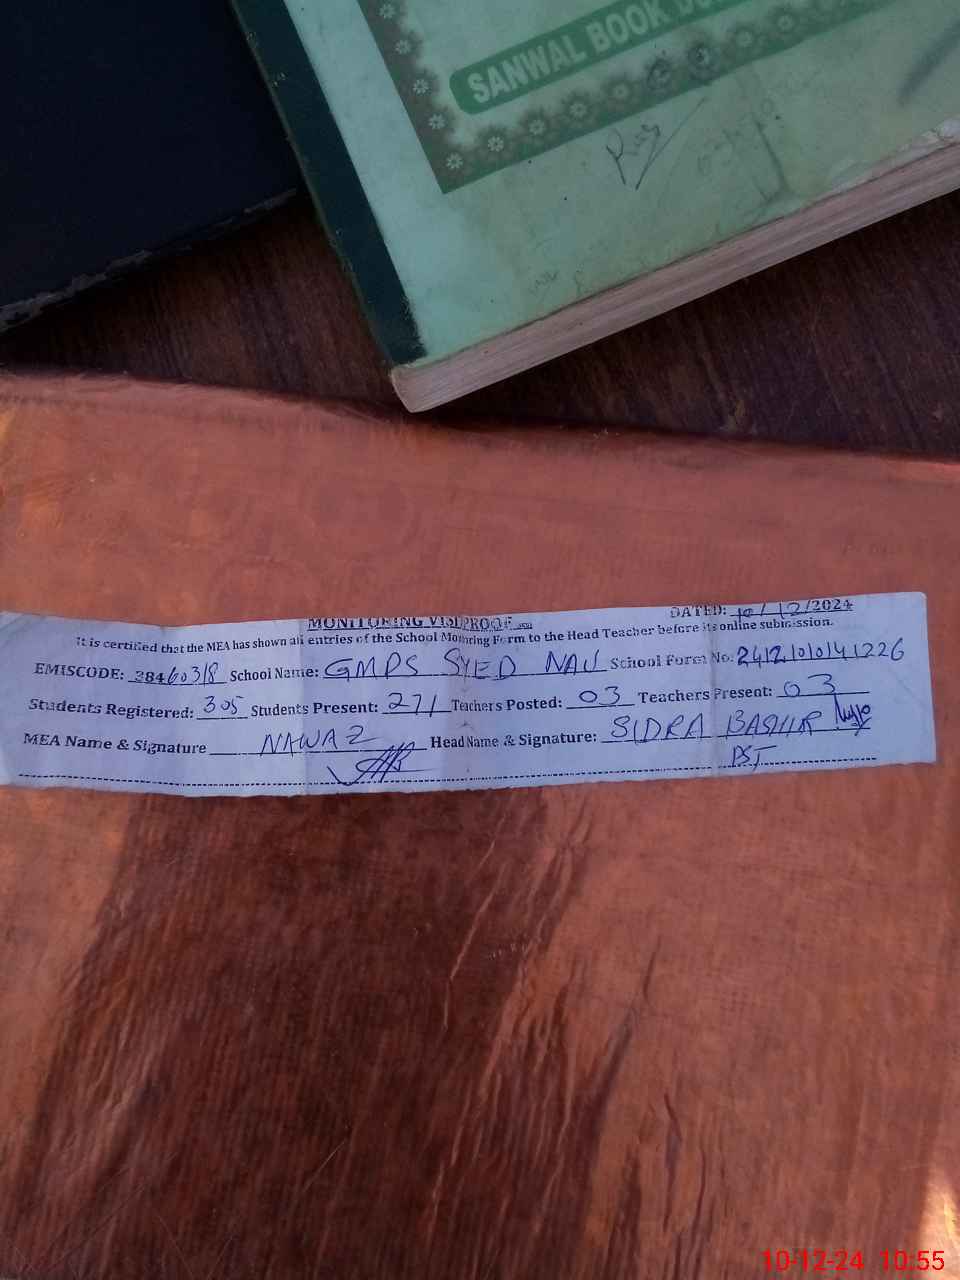 SANWAL BOOK
MONITORING VISIT PROOF
DATED: 10/12/2024
It is certified that the MEA has shown all entries of the School Monitoring Form to the Head Teacher before its online submission.
EMISCODE: 38460318 School Name: GMPS SYED NAU School Form No: 2412101041226
Students Registered: 305 Students Present: 271 Teachers Posted: 03 Teachers Present: 03
MEA Name & Signature NAWAZ Head Name & Signature: SIDRA BASHIR
PST
10-12-24 10:55